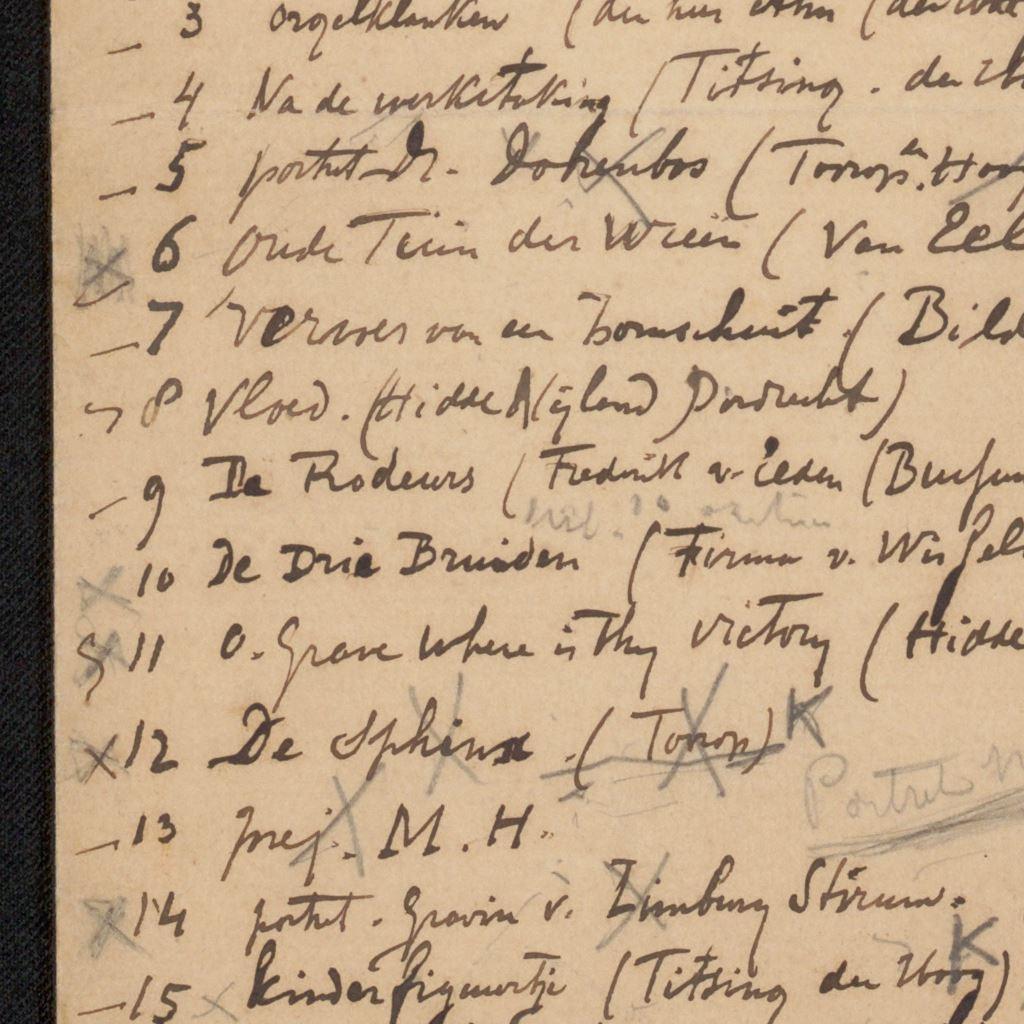 3 Orgelklanken (den heer
4 Na de werkstaking (Titsing. den
5 portret Dr. (Toorop
6 Oude Tuin der Weeën (Van Ee
7 Vervoer van een Boomschuit. (Bild
8 Vloed. (Hidde Nijland Dordrecht)
9 De Rodeurs (Frederik v. Eeden
10 De Drie Bruiden (Firma v. Wis
11 O. Grave where is thy victory (Hidde
12 De Sphinx. (Toorop) K
Portret
13 prej. M. H.
14 portret. Gravin v. Limburg Stirum.
K
15 kinderfiguurtje (Titsing den Haag)